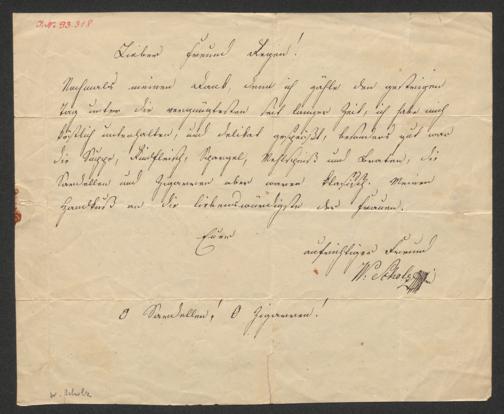 J.N. 93.318
Lieber Freund Regen!
Nochmals meinen Dank, denn ich zähle den gestrigen
Tag unter die vergnügtesten seit langer Zeit, ich habe mich
köstlich unterhalten, und delikat gespeist, besonders gut war
die Suppe, Rindfleisch, Spargel, und Braten, die
Sardellen und Zigarren aber waren klassisch. Meinen
Handkuß an die liebenswürdigste der Frauen.
Euer
aufrichtiger Freund
W. Scholz
O Sardellen! O Zigarren!
W. Scholz